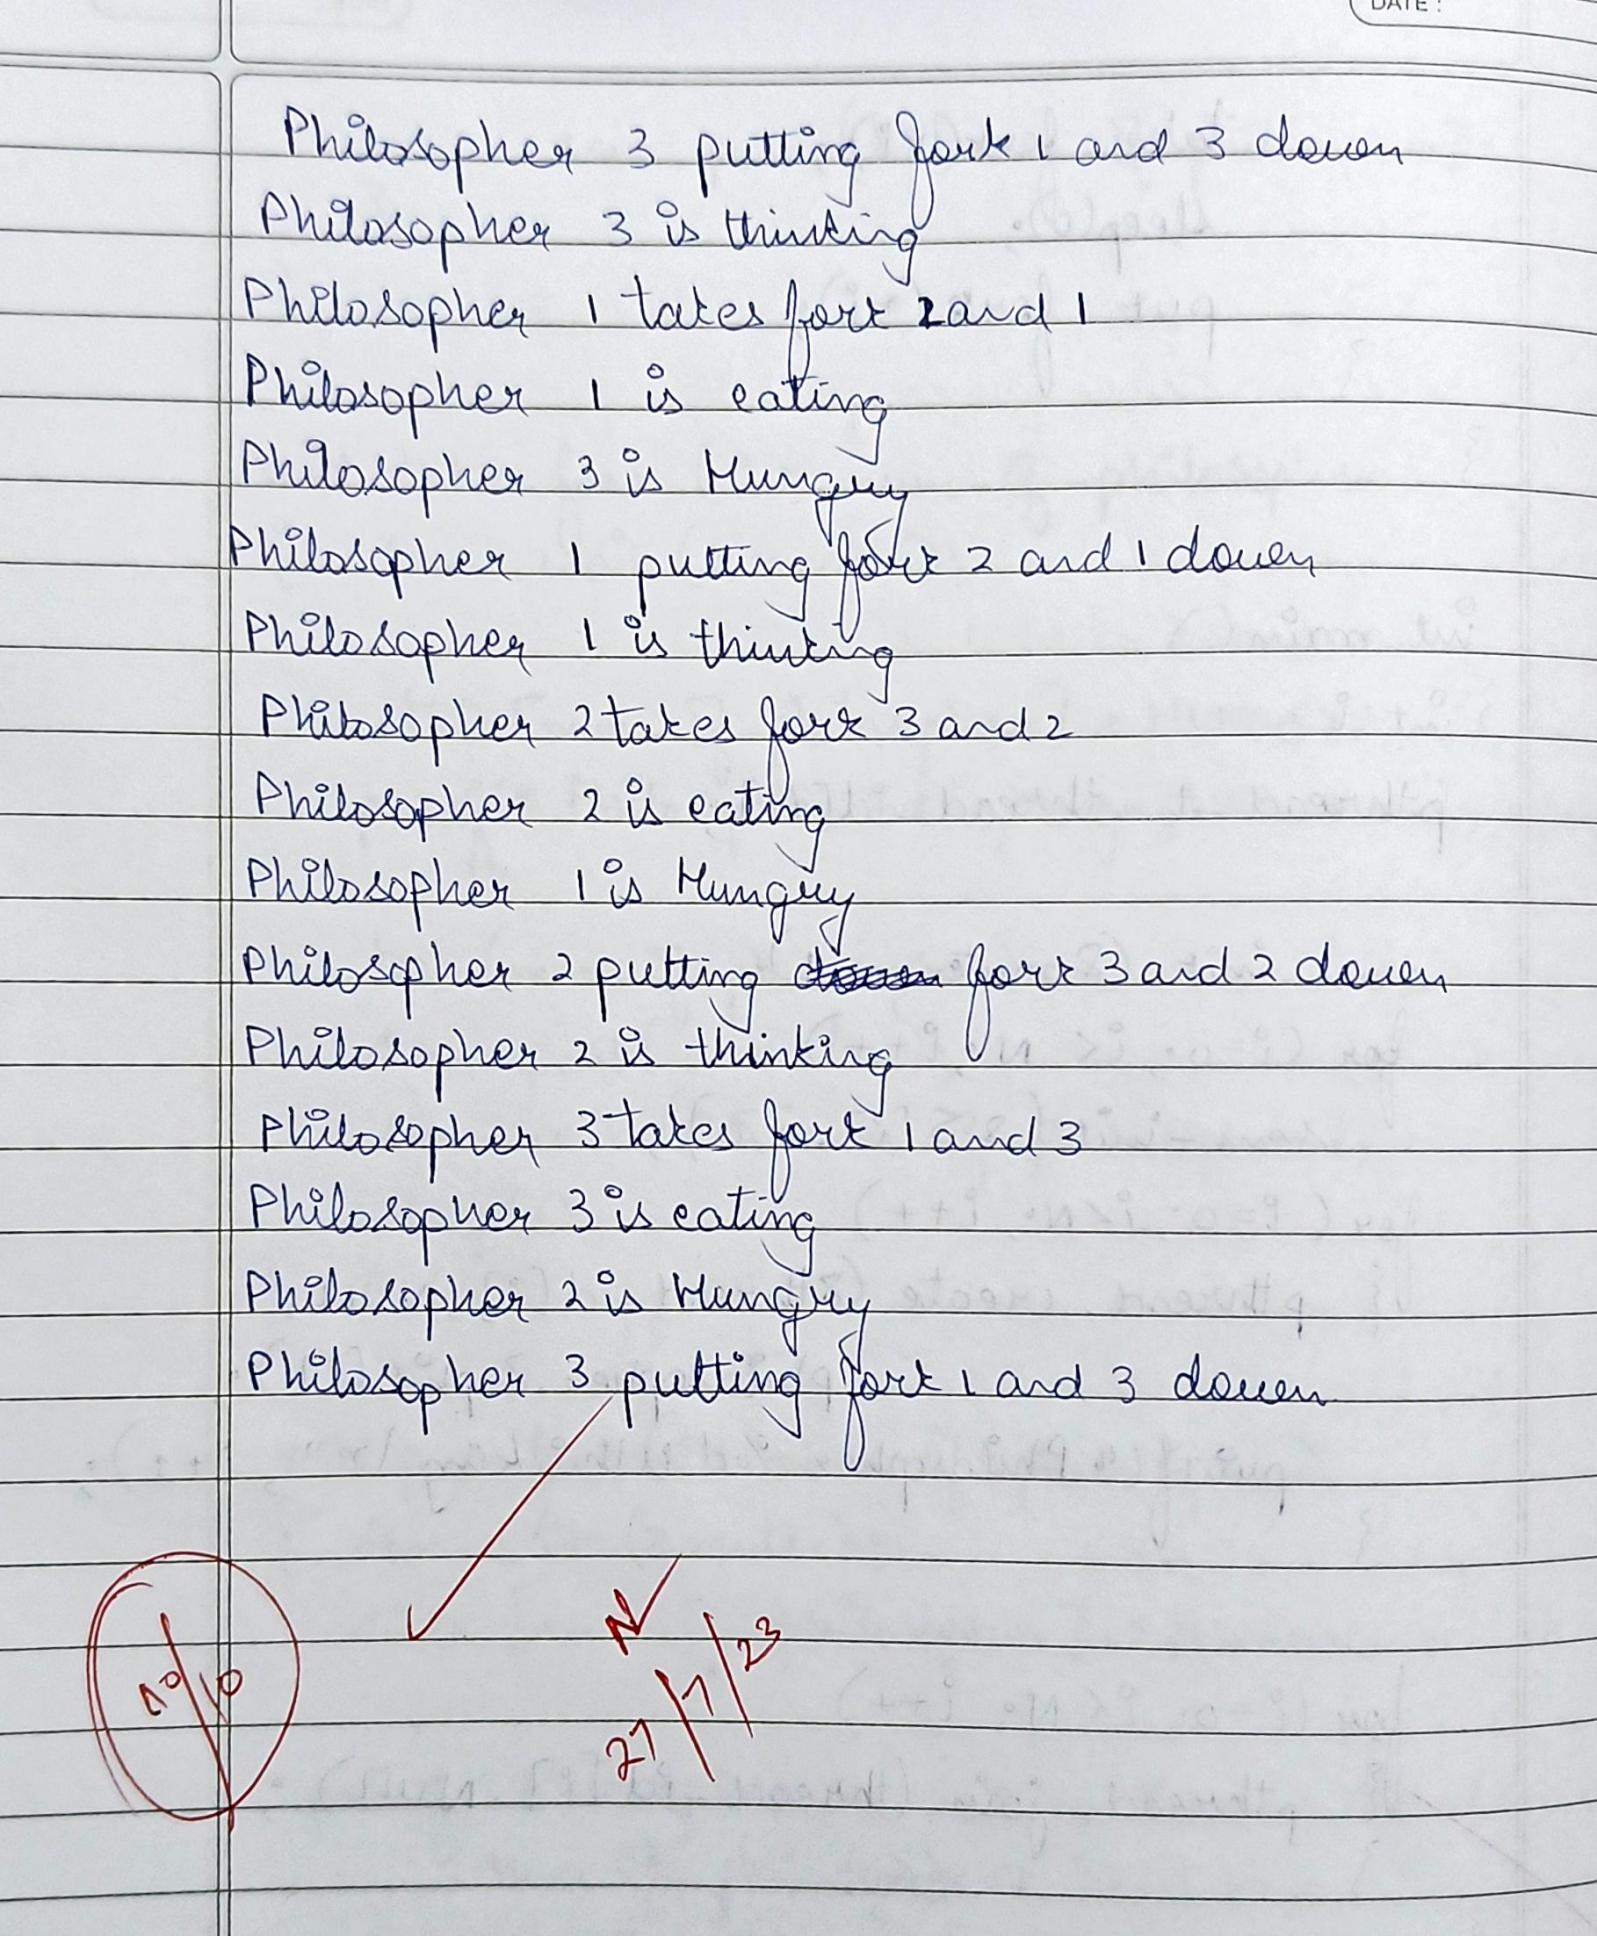 DATE :
Philosopher 3 putting fork 1 and 3 down
Philosopher 3 is thinking
Philosopher 1 takes fork 2 and 1
Philosopher 1 is eating
Philosopher 3 is Hungry
Philosopher 1 putting fork 2 and 1 down
Philosopher 1 is thinking
Philosopher 2 takes fork 3 and 2
Philosopher 2 is eating
Philosopher 1 is Hungry
Philosopher 2 putting down fork 3 and 2 down
Philosopher 2 is thinking
Philosopher 3 takes fork 1 and 3
Philosopher 3 is eating
Philosopher 2 is Hungry
Philosopher 3 putting fork 1 and 3 down
10/10
27/7/23